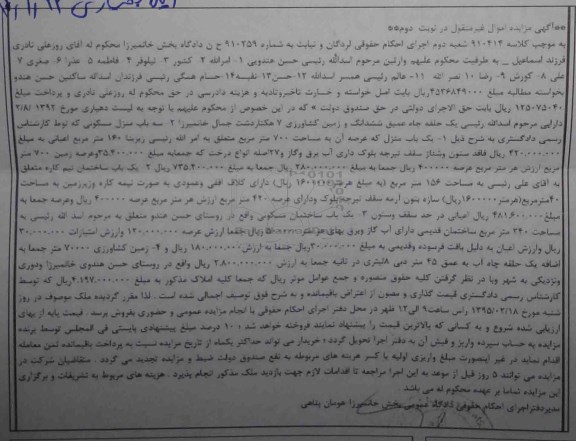 **آگهی مزایده اموال غیرمنقول در نوبت دوم**
به موجب کلاسه ۹۱۰۴۱۴ شعبه دوم اجرای احکام حقوقی لردگان و نیابت به شماره ۹۱۰۲۵۹ ح ن دادگاه بخش خانمیرزا محکوم له آقای روزعلی نادری
فرزند اسماعیل به طرفیت محکوم علیهم وارثین مرحوم اسدالله رئیسی حسین هندویی ۱- امرالله ۲- کشور ۳- نیلوفر ۴- فاطمه ۵- عذرا ۶- صغری ۷
علی ۸- کورش ۹- رضا ۱۰ نصر الله ۱۱- عالم رئیسی همسر اسدالله ۱۲-حسن ۱۳-نفیسه ۱۴-حسام همگی رئیسی فرزندان اسداله ساکنین حسن هندو
خواسته مطالبه مبلغ ۴۵۳۶۸۴۹۰۰۰ریال بابت اصل خواسته و خسارت تاخیروتادیه و هزینه دادرسی در حق محکوم له روزعلی نادری و پرداخت مبلغ
۱۲۵۰۷۵۰۴۰ ریال بابت حق الاجرای دولتی در حق صندوق دولت * که در این خصوص از محکوم علیهم با توجه به لیست دهیاری مورخ ۱۳۹۲/۲/۸
دارایی مرحوم اسدالله رئیسی یک حلقه چاه عمیق ششدانگ و زمین کشاورزی ۷ هکتاردشت جمال خانمیرزا ۲- سه باب منزل مسکونی که توسط کارشناس
رسمی دادگستری به شرح ذیل ۱- یک باب منزل که عرصه آن به مساحت ۷۰۰ متر مربع متعلق به امر الله رئیسی زیربنا ۱۴۰ متر مربع اعیانی به مبلغ
۴۲۰.۰۰۰.۰۰۰ ریال فاقد ستون وشناژ سقف تیرچه بلوک داری آب برق وگاز و۲۷اصله انواع درخت که جمعابه مبلغ ۳۵.۴۰۰.۰۰۰وعرصه زمین ۷۰۰ متر
مربع ارزش هر متر مربع عرصه ۴۰۰۰۰۰ ریال جمعا به مبلغ ۲۸۰.۰۰۰.۰۰۰ ریال جمعا به مبلغ ۷۳۵.۴۰۰.۰۰۰ ریال ۲- یک باب ساختمان نیم کاره متعلق
به آقای علی رئیسی به مساحت ۱۵۶ متر مربع (به مبلغ هرمتر ۱۶۰۰۰۰۰ ریال) دارای کلاف افقی وعمودی به صورت نیمه کاره وزیرزمین به مساحت
۴۰مترمربع(هرمتر۱۶۰۰۰۰۰ریال) سازه بتون آرمه سقف تیرچه بلوک ودارای عرصه ۴۲۰ متر مربع ارزش هر متر مربع عرصه ۴۰۰۰۰۰ ریال وعرصه جمعا به
مبلغ ۴۸۱.۶۰۰.۰۰۰ ریال اعیانی در حد سقف وستون ۳- یک باب ساختمان مسکونی واقع در روستای حسن هندو متعلق به مرحوم اسد الله رئیسی به
مساحت ۲۴۰ متر مربع ساختمان قدیمی دارای آب گاز وبرق بهای هر متر ریال جمعا ارزش عرصه ۱۲۰.۰۰۰.۰۰۰ وارزش امتیازات ۳۰.۰۰۰.۰۰۰
ریال وارزش اعیان به دلیل بافت فرسوده وقدیمی به مبلغ ۳۰.۰۰۰.۰۰۰ریال جمعا به ارزش ۱۸۰.۰۰۰.۰۰۰ ریال و ۴- زمین کشاورزی ۷۰۰۰۰ متر جمعا به
اضافه یک حلقه چاه آب به عمق ۴۵ متر دبی ۸لیتری در ثانیه جمعا به ارزش ۲.۸۰۰.۰۰۰.۰۰۰ ریال واقع در روستای حسن هندوی خانمیرزا ودوری
ونزدیکی به شهر وبا در نظر گرفتن کلیه حقوق متصوره و جمع عوامل موثر ریال که جمعا کلیه املاک مذکور به مبلغ ۴.۱۹۷.۰۰۰.۰۰۰ریال که توسط
کارشناس رسمی دادگستری قیمت گذاری و مصون از اعتراض باقیمانده و به شرح فوق توصیف اجمالی شده است . لذا مقرر گردیده ملک موصوف در روز
شنبه مورخ ۱۳۹۵/۰۲/۱۸ راس ساعت۹ الی۱۲ ظهر در محل دفتر اجرای احکام حقوقی با انجام مزایده عمومی و حضوری بفروش برسد . قیمت پایه از بهای
ارزیابی شده شروع و به کسانی که بالاترین قیمت را پیشنهاد نمایند فروخته خواهد شد ، ۱۰ درصد مبلغ پیشنهادی بایستی فی المجلس توسط برنده
مزایده به حساب سپرده واریز و فیش آن به دفتر اجرا تحویل گردد ، خریدار می تواند حداکثر یکماه از تاریخ مزایده نسبت به پرداخت باقیمانده ثمن معامله
اقدام نماید در غیر اینصورت مبلغ واریزی اولیه با کسر هزینه های مربوطه به نفع صندوق دولت ضبط و مزایده تجدید می گردد . متقاضیان شرکت در
مزایده می توانند ۵ روز قبل از موعد به این اجرا مراجعه تا اقدامات لازم جهت بازدید ملک مذکور انجام پذیرد ، هزینه های مربوط به تشریفات و برگزاری
این مزایده تماما بر عهده محکوم له می باشد .
مدیردفتراجرای احکام حقوقی دادگاه عمومی بخش خانمیرزا هومان پناهی